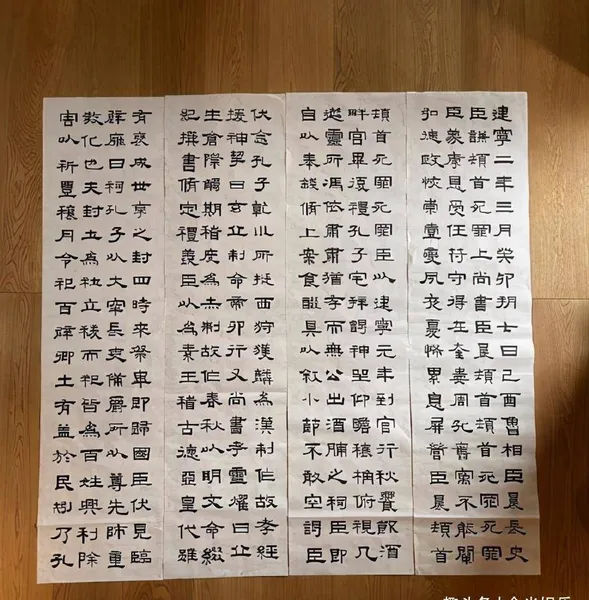 建寧二年三月癸卯朔七日己酉魯相臣晨長史
臣謙頓首死罪上尚書臣晨頓首頓首死罪死罪
臣蒙厚恩受任符守得在奎婁周孔舊寓不能闡
弘德政恢崇壹變夙夜憂怖累息屏營臣晨頓首
頓首死罪死罪臣以建寧元年到官行秋饗飲酒
畔宮畢復禮孔子宅拜謁神坐仰瞻榱桷俯視几
筵靈所馮依肅肅猶存而無公出酒脯之祠臣即
自以奉錢脩上案食醊具以敘小節不敢空謁臣
伏念孔子乾川所挺西狩獲麟為漢制作故孝經
援神契曰玄丘制命帝卯行又尚書考靈燿曰丘
生倉際觸期稽度為赤制故作春秋以明文命綴
紀撰書脩定禮義臣以為素王稽古德亞皇代雖
有褒成世享之封四時來祭畢即歸國臣伏見臨
辟雍日祠孔子以大宰長吏備爵所以尊先師重
教化也夫封土為社立稷而祀皆為百姓興利除
害以祈豐穰月令祀百辟卿士有益於民矧乃孔